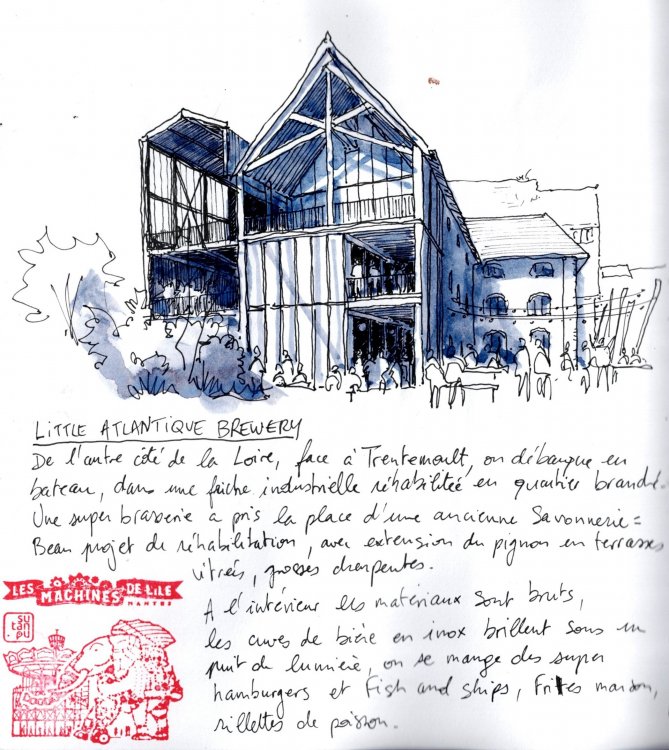 LITTLE ATLANTIQUE BREWERY
De l'autre côté de la Loire, face à Trentemoult, on débarque en
bateau, dans une friche industrielle réhabilitée en quartier branché.
Une super brasserie a pris la place d'une ancienne Savonnerie =
Beau projet de réhabilitation, avec extension du pignon en terrasses
vitrées, grosses charpentes.
A l'intérieur les matériaux sont bruts,
les cuves de bière en inox brillent sous un
puit de lumière, on se mange des super
hamburgers et fish and ships, frites maison,
rillettes de poisson.
LES MACHINES DE L'ILE
NANTES
su
tan
pu